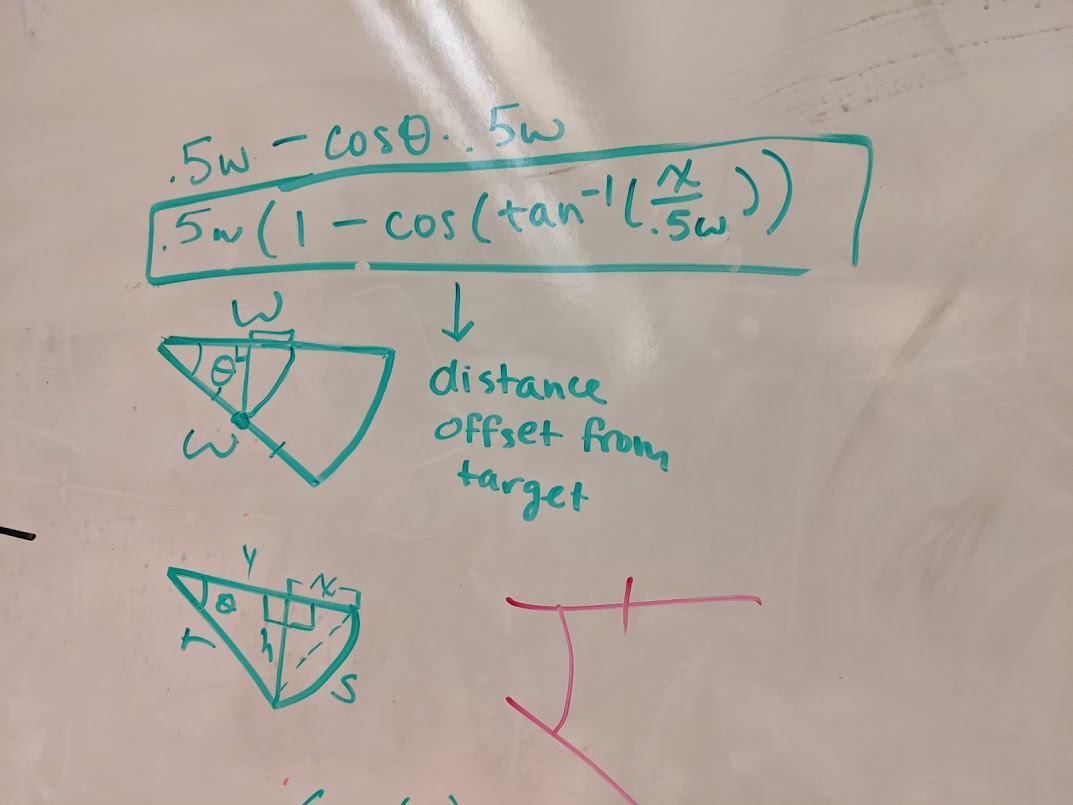 .5w - cosθ · .5w
.5w(1 - cos(tan⁻¹(x/.5w))
w
θ
w
distance
offset from
target
y
x
θ
r
h
s